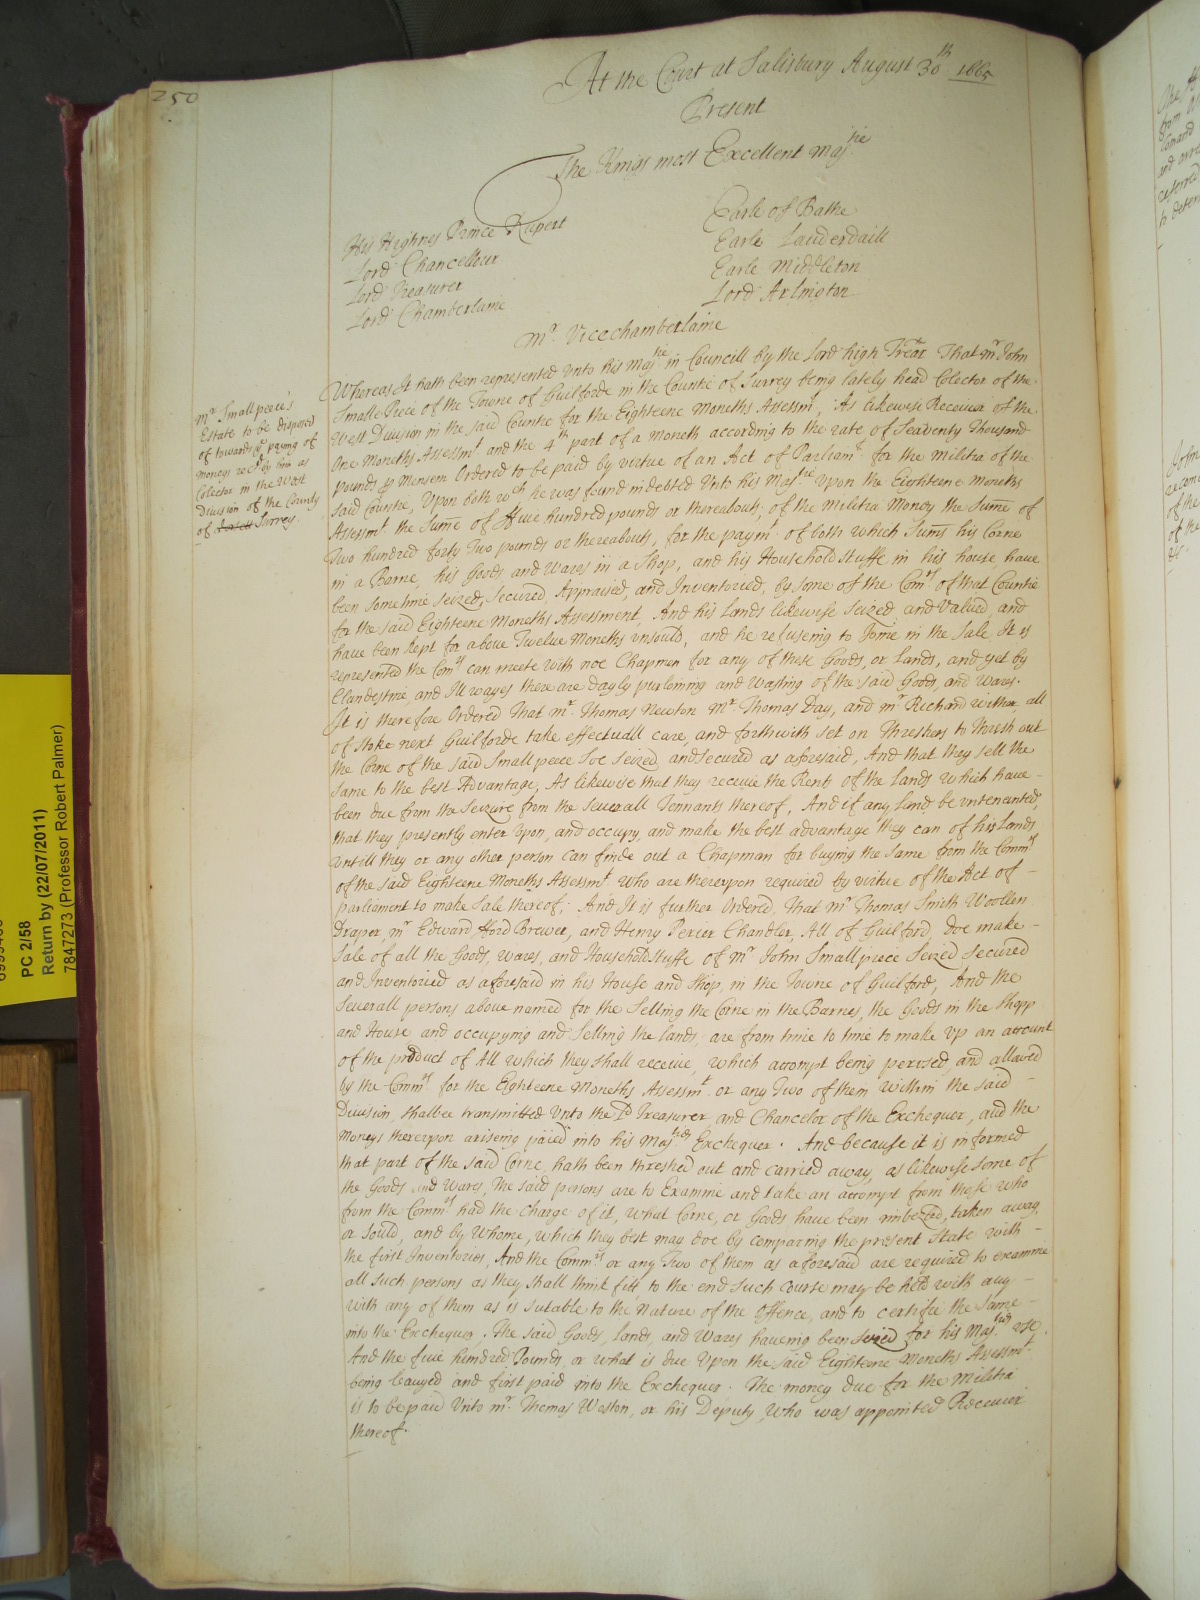 250
At the Court at Salisbury August 30th 1665
Present
The Kings most Excellent Majtie
His Highnes Prince Rupert
Lord Chancellour
Lord Treasurer
Lord Chamberlaine
Earle of Bathe
Earle Lauderdaill
Earle Middleton
Lord Arlington
Mr. Vicechamberlaine
Mr Smallpeece's
Estate to be disposed
of towards ye paying of
moneys recd by him as
Colector in the West
Division of the County
of Surrey.
Whereas It hath been represented unto his Majtie in Councill by the Lord high Trear That mr John
Smalle Piece of the Towne of Guilforde in the Countie of Surrey being lately head Colector of the
West Division in the said Countie for the Eighteene Moneths Assessmt, As likewise Receiver of the
One Moneths Assessmt and the 4th part of a Moneth according to the rate of Seaventy Thousand
pounds p Mensem Ordered to be paid by virtue of an Act of Parliamt for the Militia of the
said Countie, Upon both wch he was found indebted Unto his Majtie Upon the Eighteene Moneths
Assessmt the Sume of ffive hundred pounds or thereabouts; of the Militia Money the Sume of
Two hundred forty Two pounds or thereabouts, for the paymt of both which Sums his Corne
in a Barne, his Goods and Wares in a Shop, and his Household Stuffe in his house have
been sometime seized, Secured Appraised, and Inventoried, by some of the Comrs of that Countie
for the said Eighteene Moneths Assessment, And his Lands likewise Seized and Valued, and
have been kept for above Twelve Moneths unsould, and he refuseing to Joine in the Sale, It is
represented the Comrs can meete with noe Chapman for any of these Goods, or Lands, and yet by
Clandestine, and Ill wayes there are dayly purloining and Wasting of the said Goods, and Wares.
It is therefore Ordered That mr. Thomas Newton Mr. Thomas Day, and mr Richard withar all
of Stoke next Guilforde take effectuall care, and forthwith set on Threshers to thresh out
the Corne of the said Smallpeece Soe Seized, and secured as aforesaid, And that they sell the
same to the best Advantage, As likewise that they receive the Rents of the Lands which have -
been due from the Seizure from the severall Tennants thereof, And if any Land be untenanted,
that they presently enter Upon, and occupy, and make the best advantage they can of his Lands
untill they or any other person can finde out a Chapman for buying the same from the Commrs
of the said Eighteene Moneths Assessmt Who are thereupon required by virtue of the Act of -
parliament to make Sale thereof; And It is further Ordered, That mr Thomas Smith Woollen
Draper, mr Edward fford Brewer, and Henry Perier Chandler, All of Guilford, doe make -
Sale of all the Goods, wares, and Household Stuffe of mr John Smallpiece Seized Secured
and Inventoried as aforesaid in his House and Shop, in the Towne of Guilford, And the
Severall persons above named for the Selling the Corne in the Barnes, the Goods in the Shopp
and House and occupying and Selling the Lands, are from time to time to make Up an accompt
of the product of All which they shall receive, which accompt being perused, and allowed
by the Commrs for the Eighteene Moneths Assessmt or any Two of them within the said -
Division, shalbee transmitted Unto the Ld Treasurer and Chancelor of the Exchequer, and the
Moneys thereupon ariseing paied into his Majties Exchequer. And because it is informed
that part of the said Corne, hath been threshed out and carried away, as likewise some of
the Goods and Wares, The said persons are to Examine and take an accompt from those who
from the Commrs had the charge of it, What Corne, or Goods have been imbezled, taken away,
or sould, and by Whome, which they best may doe by comparing the present State with -
the first Inventories, And the Commrs or any Two of them as aforesaid are required to examine
all such persons as they shall think fitt, to the end such course may be held with any -
with any of them as is sutable to the Nature of the Offence, and to certifie the same -
into the Exchequer. The said Goods, Lands, and Wares haveing been seized for his Majties use.
And the five hundred Pounds, or what is due Upon the said Eighteene Moneths Assessmt
being leavyed and first paid into the Exchequer. The money due for the Militia
is to be paid Unto mr. Thomas Weston, or his Deputy, Who was appointed Receiver
thereof.
PC 2/58
Return by (22/07/2011)
7847273 (Professor Robert Palmer)